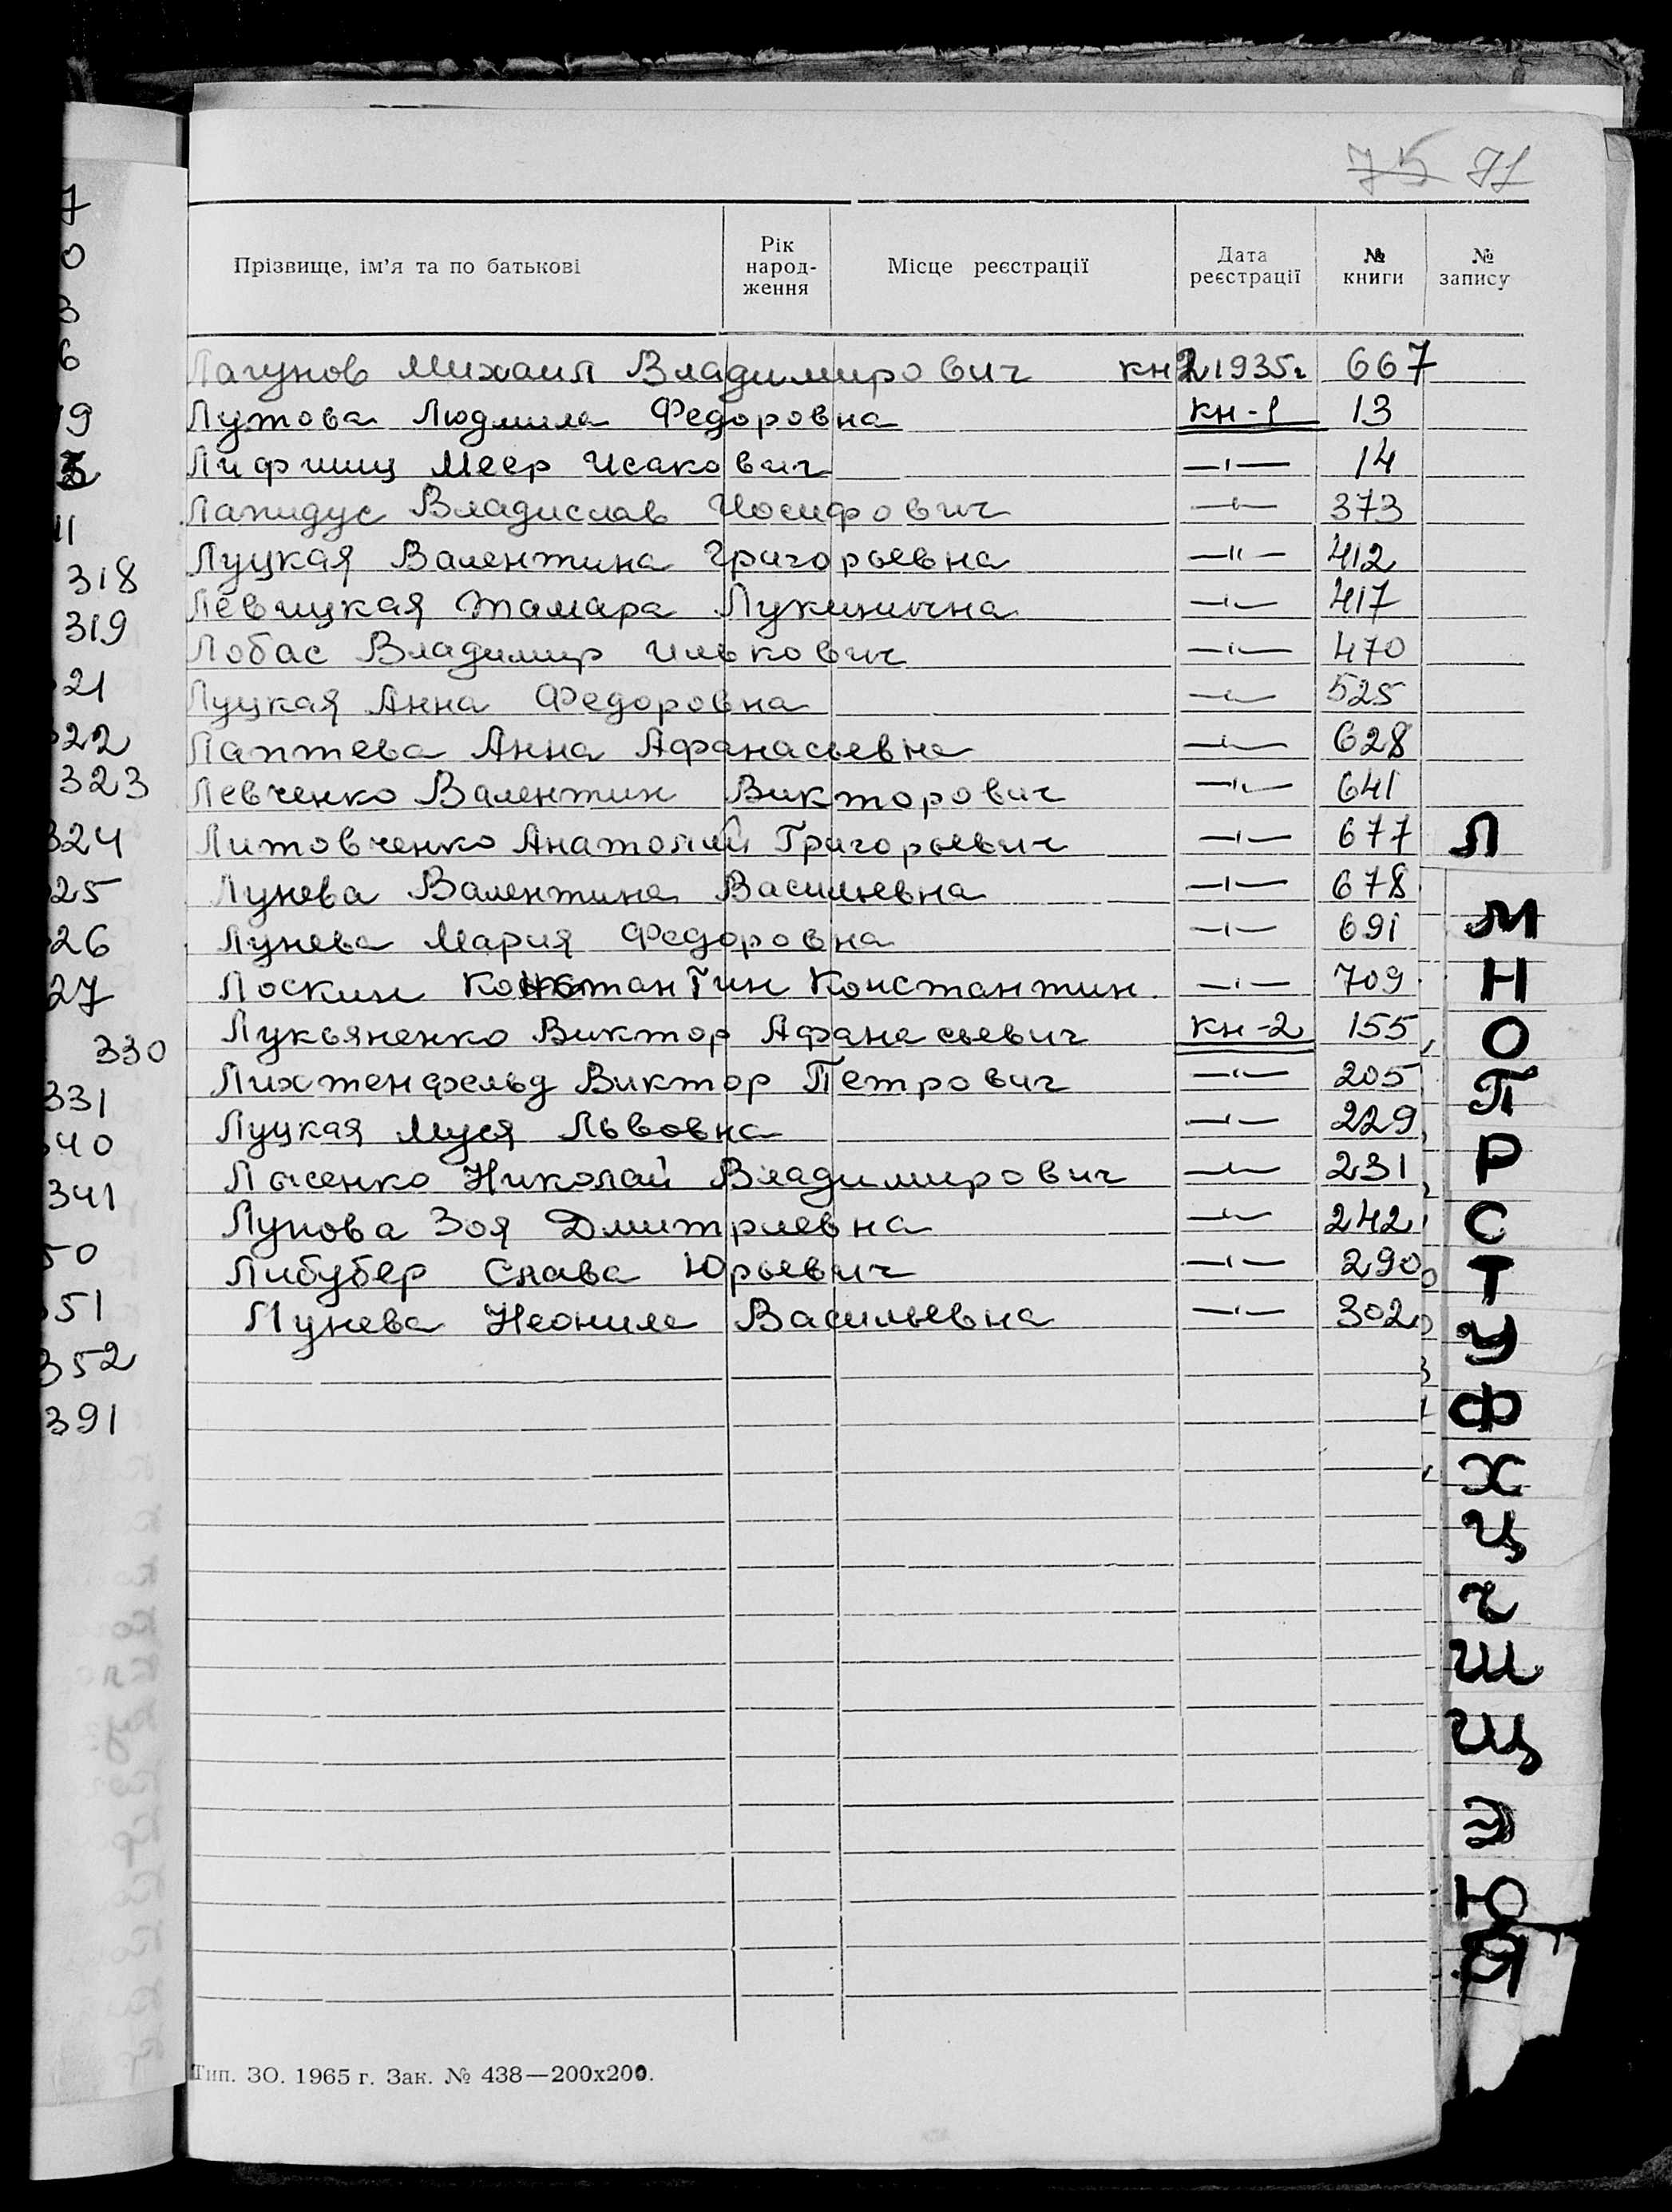 75 71
Прізвище, ім'я та по батькові
Рік народ-ження
Місце реєстрації
Дата реєстрації
№ книги
№ запису
Лагунов Михаил Владимирович кн2 1935г 667
Лутова Людмила Федоровна кн-1 13
Лифшиц Меер Исакович —ı— 14
Лапидус Владислав Иосифович —ı— 373
Луцкая Валентина Григорьевна —ıı— 412
Левицкая Тамара Лукинична —ı— 417
Лобас Владимир Илькович —ı— 470
Луцкая Анна Федоровна —ı— 525
Лаптева Анна Афанасьевна —ı— 628
Левченко Валентин Викторович —ı— 641
Литовченко Анатолий Григорьевич —ı— 677
Лунева Валентина Васильевна —ı— 678
Лунева Мария Федоровна —ı— 691
Лоскин Константин Константин. —ı— 709
Лукьяненко Виктор Афанасьевич кн-2 155
Лихтенфельд Виктор Петрович —ı— 205
Луцкая Муся Львовна —ı— 229
Лысенко Николай Владимирович —ı— 231
Лунова Зоя Дмитриевна —ı— 242
Либубер Слава Юрьевич —ı— 290
Лунева Неонила Васильевна —ı— 302
Тип. ЗО. 1965 г. Зак. № 438—200х200.
318
319
21
322
323
324
25
26
27
330
331
40
341
50
51
352
391
Л
М
Н
О
П
Р
С
Т
У
Ф
Х
Ц
Ч
Ш
Щ
Э
Ю
Я